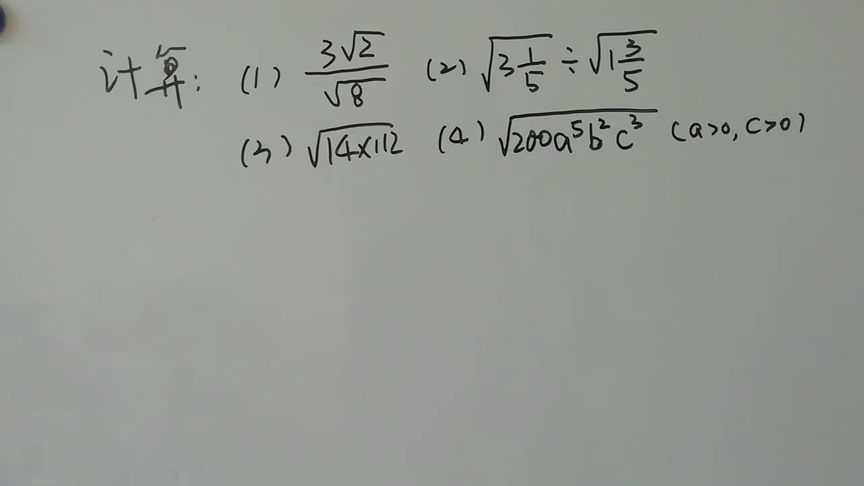 计算: (1) 3√2/√8 (2) √(3 1/5) ÷ √(1 3/5)
(3) √(14×112) (4) √(200a⁵b²c³) (a>0, c>0)